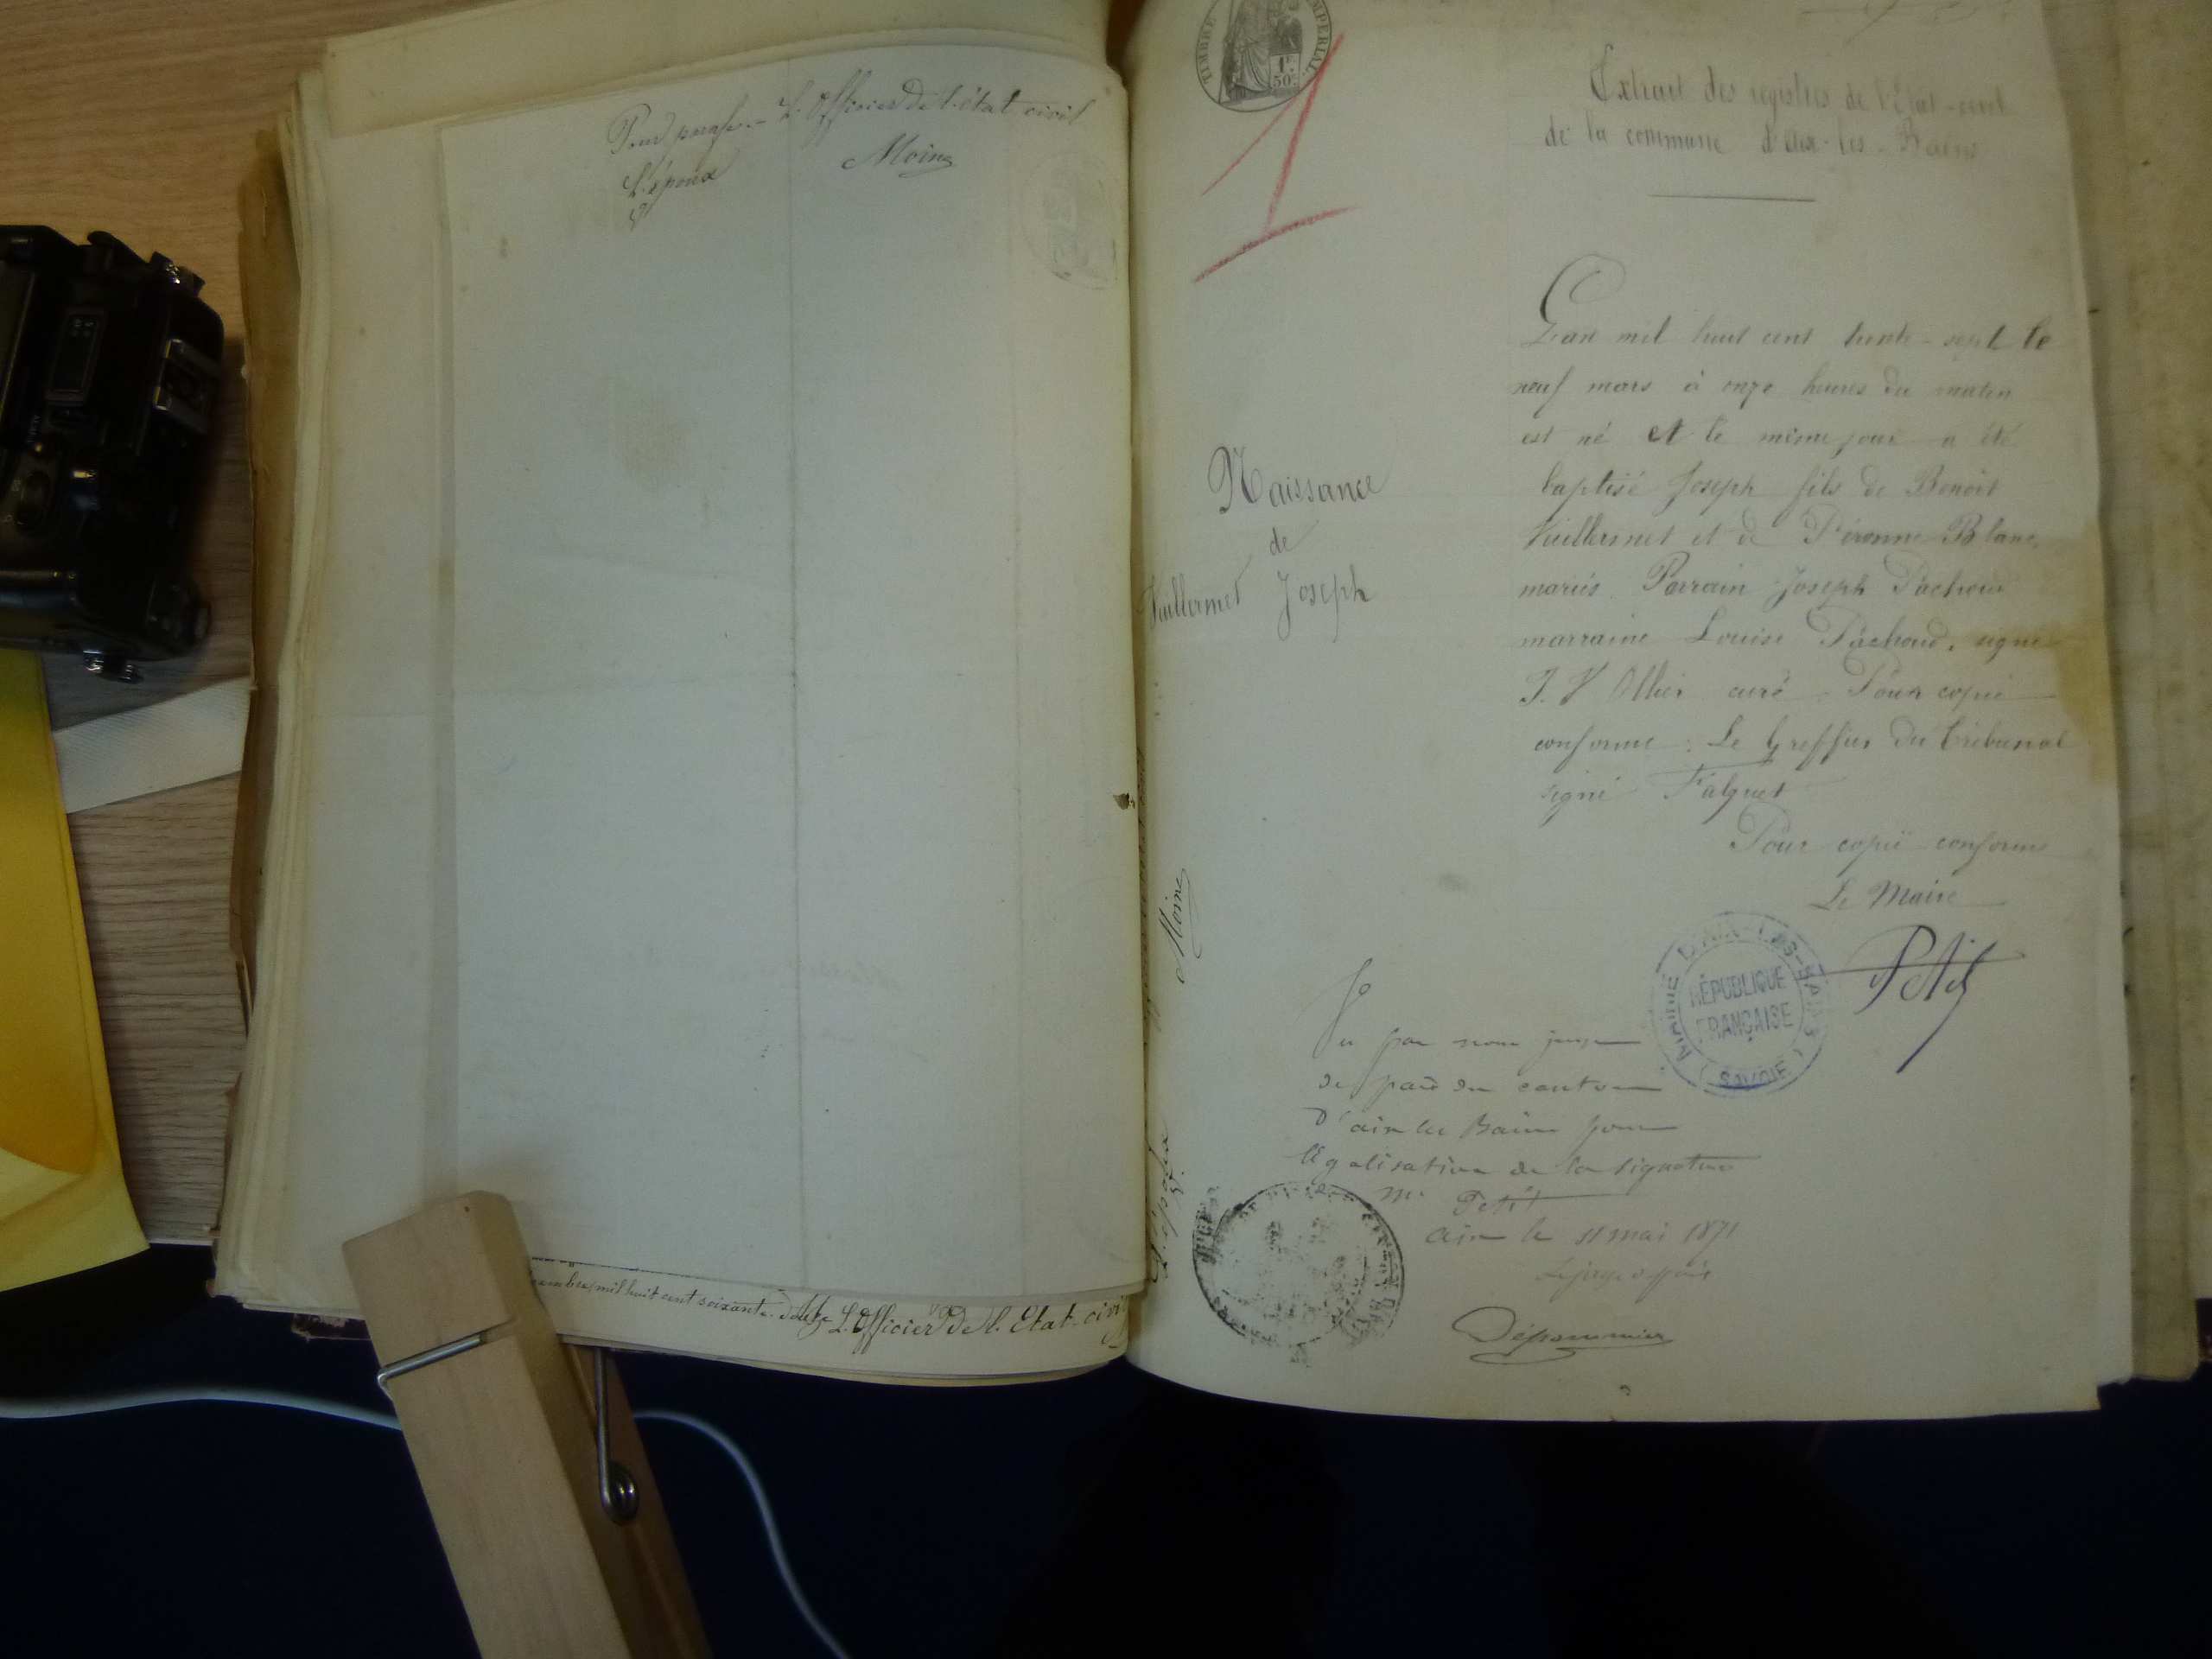 L'Officier de l'état civil
L'époux
Moine
mil huit cent soixante-douze L'Officier de l'Etat-civil
Moine
L'époux
TIMBRE IMPERIAL
1F.
50C.
1
Extrait des registres de l'Etat-civil
de la commune d'Aix-les-Bains
Naissance
de
Vuillermet Joseph
L'an mil huit cent trente-sept le
neuf mars à onze heures du matin
est né et le même jour a été
baptisé Joseph fils de Benoit
Vuillermet et de Péronne Blanc,
mariés. Parrain Joseph Pachoud
marraine Louise Pachoud, signé
J. V Ollier curé. Pour copie
conforme : Le Greffier du Tribunal
signé Falquet
Pour copie conforme
Le Maire
Petit
MAIRIE D'AIX-LES-BAINS
RÉPUBLIQUE
FRANÇAISE
(SAVOIE)
Vu par nous juge
de paix du canton
d'aix les Bains pour
légalisation de la signature
de Mr Petit
aix le 11 mai 1871
Le juge de paix
Dépommier